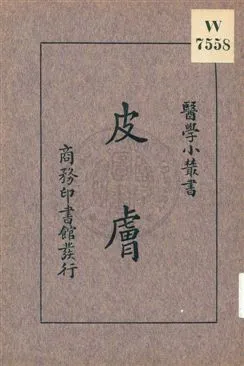 W
7558
醫學小叢書
皮膚
商務印書館發行